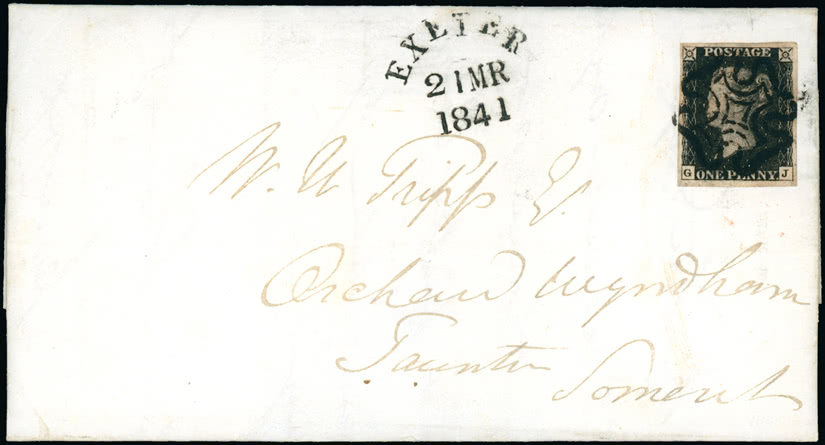 EXETER
21MR
1841
POSTAGE
G ONE PENNY J
W. U Tripps Es.
Orchard Wyndham
Taunton
Somerset